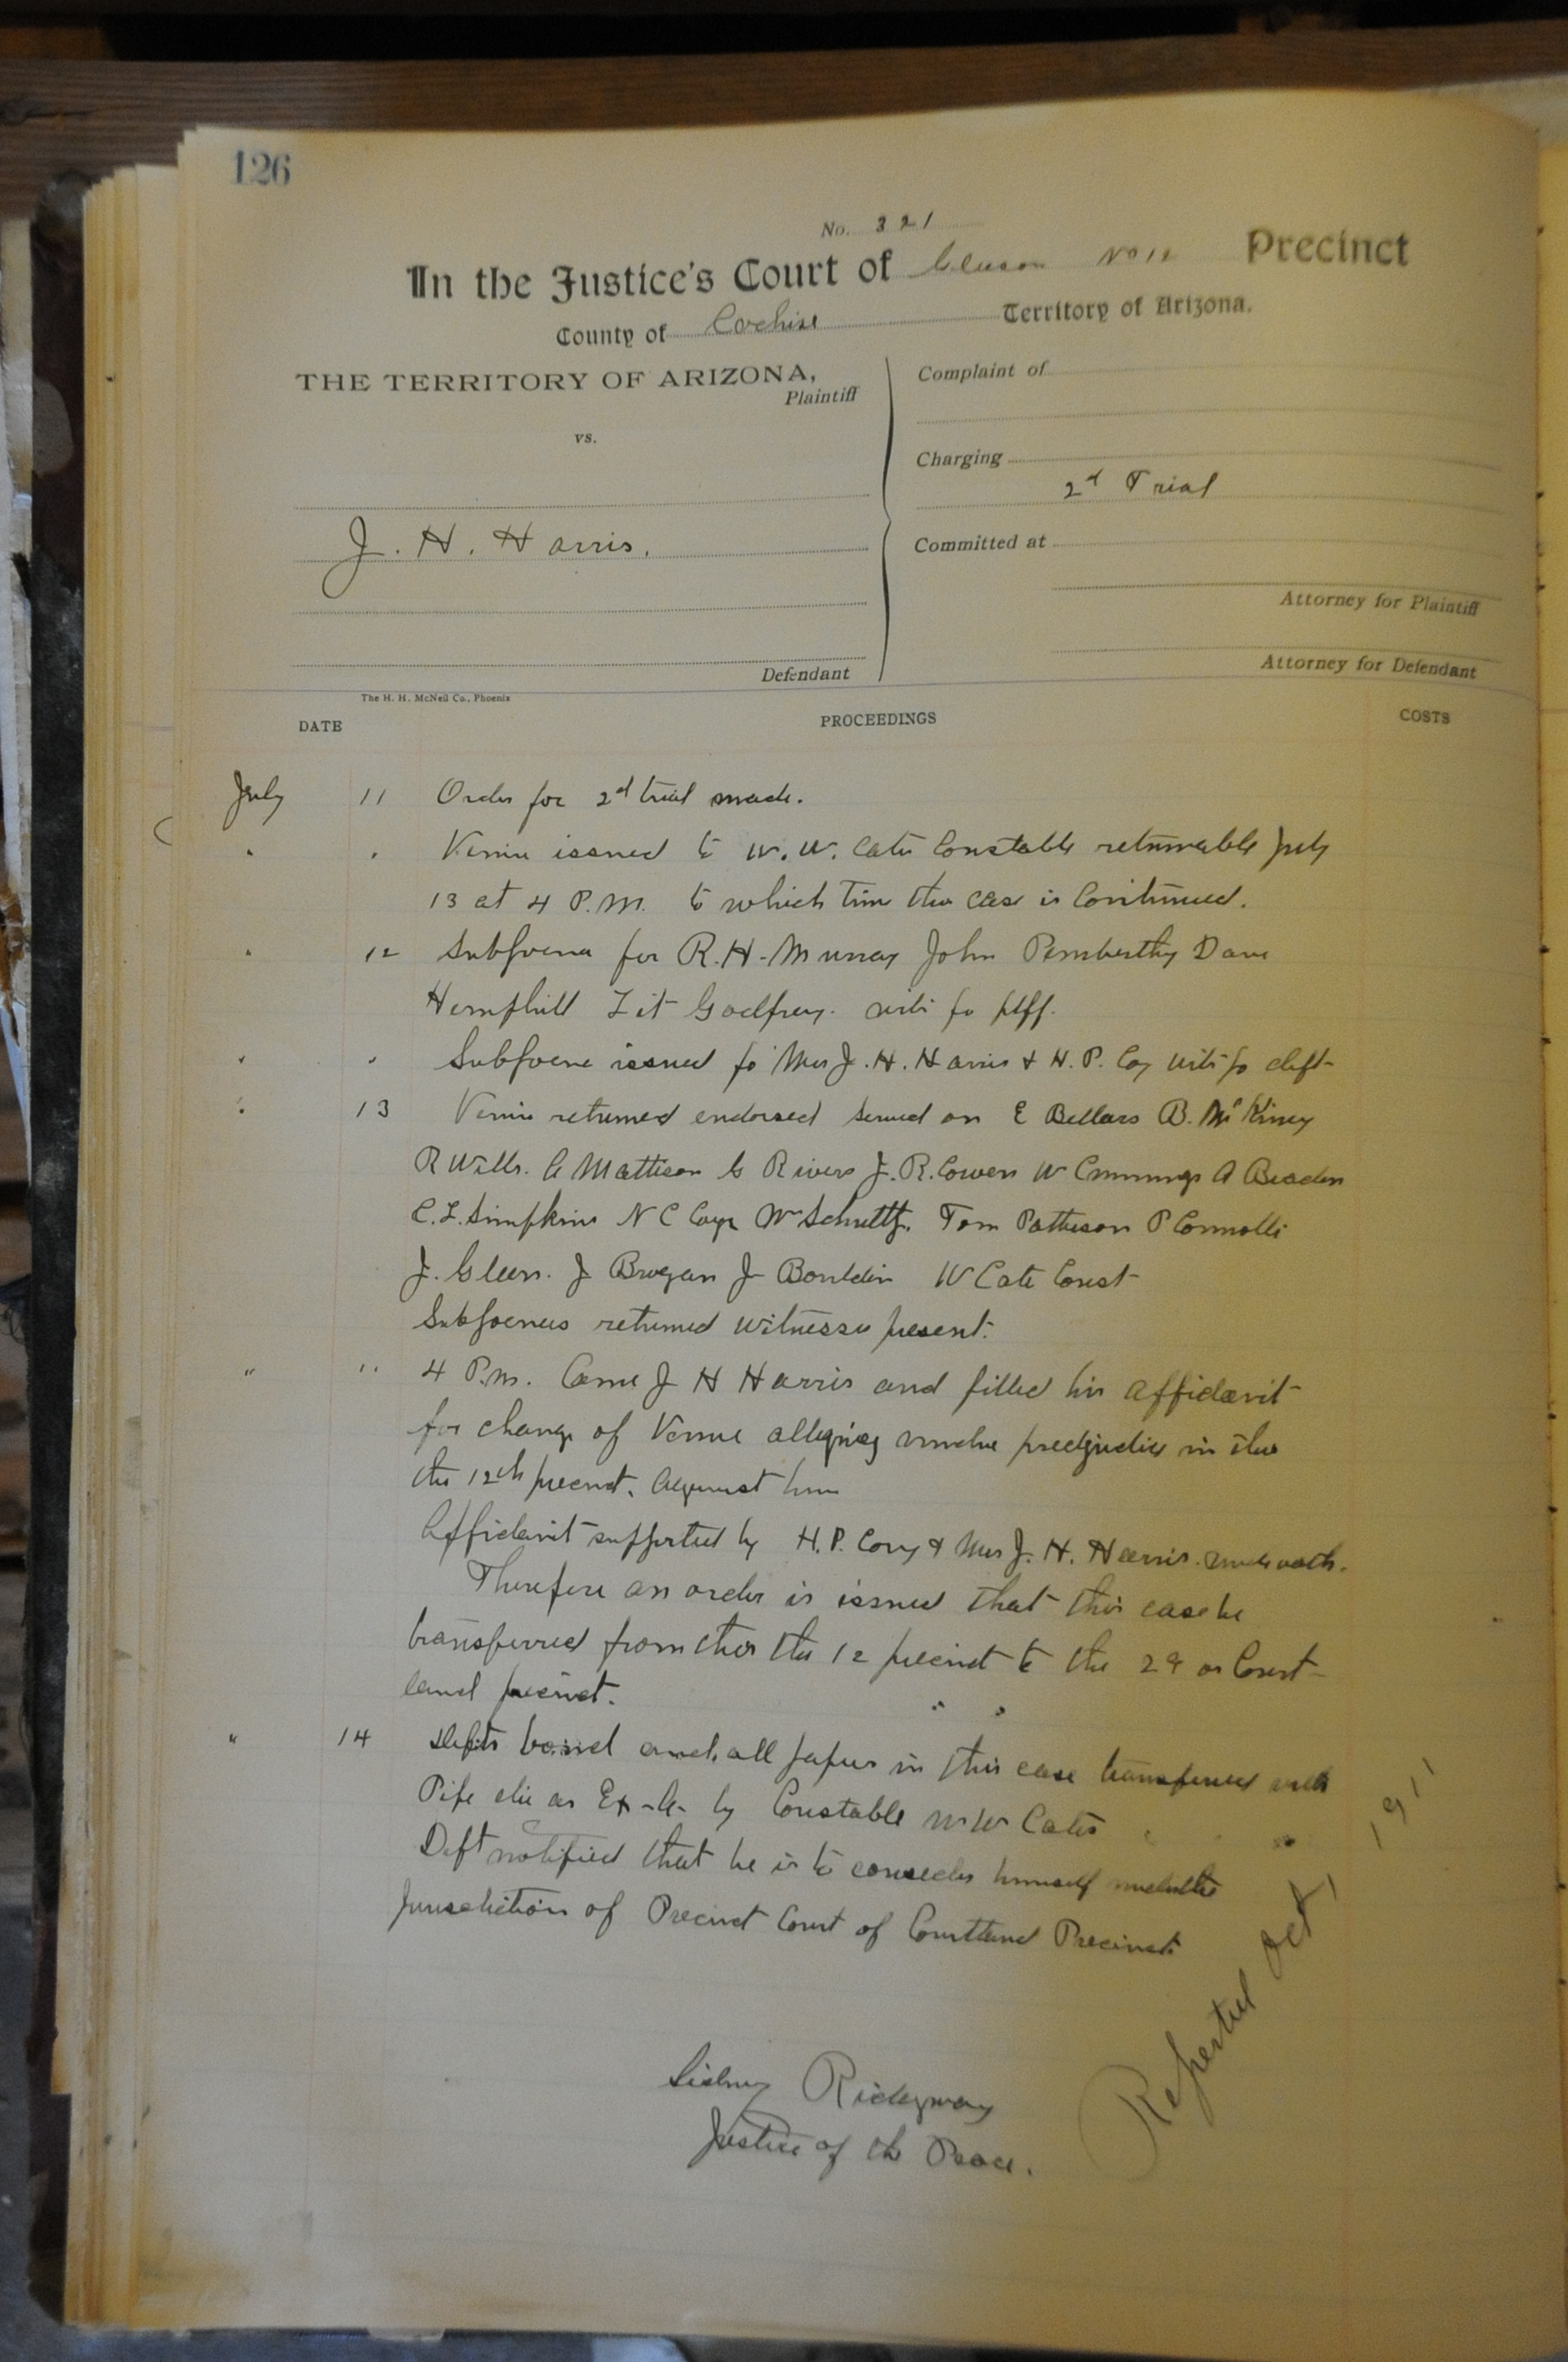 126
No. 321
In the Justice's Court of Gleason No 12 Precinct
County of Cochise Territory of Arizona.
THE TERRITORY OF ARIZONA,
Plaintiff
vs.
J. H. Harris.
Defendant
Complaint of
Charging
2d Trial
Committed at
Attorney for Plaintiff
Attorney for Defendant
The H. H. McNeil Co., Phoenix
DATE PROCEEDINGS COSTS
July 11 Order for 2d trial made.
Venire issued to W. W. Cate Constable returnable July
13 at 4 P.M. to which time the case is Continued.
12 Subpoena for R. H. Murray John Pemberthy Dave
Hemphill Lit Godfrey. wits fo pltf.
Subpoena issued fo Mrs J. H. Harris & H. P. Coy wits fo deft
13 Venire returned endorsed served on E Bellars B. McKiney
R Wills. A Mattison G Rivers J. R. Cowen W Cummings A Beaden
C. L. Simpkins N C Wm Schultz. Tom Pattison P Connolli
J. Gleen. J Brogan J Bouldin W Cate Const
Subpoenas returned witnesses present.
" " 4 P.M. Came J H Harris and filled his affidavit
for change of Venue alleging undue predjudice in
the 12th precinct. against him
Affidavit supported by H. P. Cory & Mrs J. H. Harris. under oath.
Therefore an order is issued that this case be
transferred from this the 12 precinct to the 29 or Court
land precinct.
" 14 Defts bond and all papers in this case transferred with
Pipe die as Ex-A- by Constable W W Cate
Deft notified that he is to consider himself under the
Jurisdiction of Precinct Court of Courtland Precinct
Sidney Ridgway
Justice of the Peace.
Reported Oct 1 1911